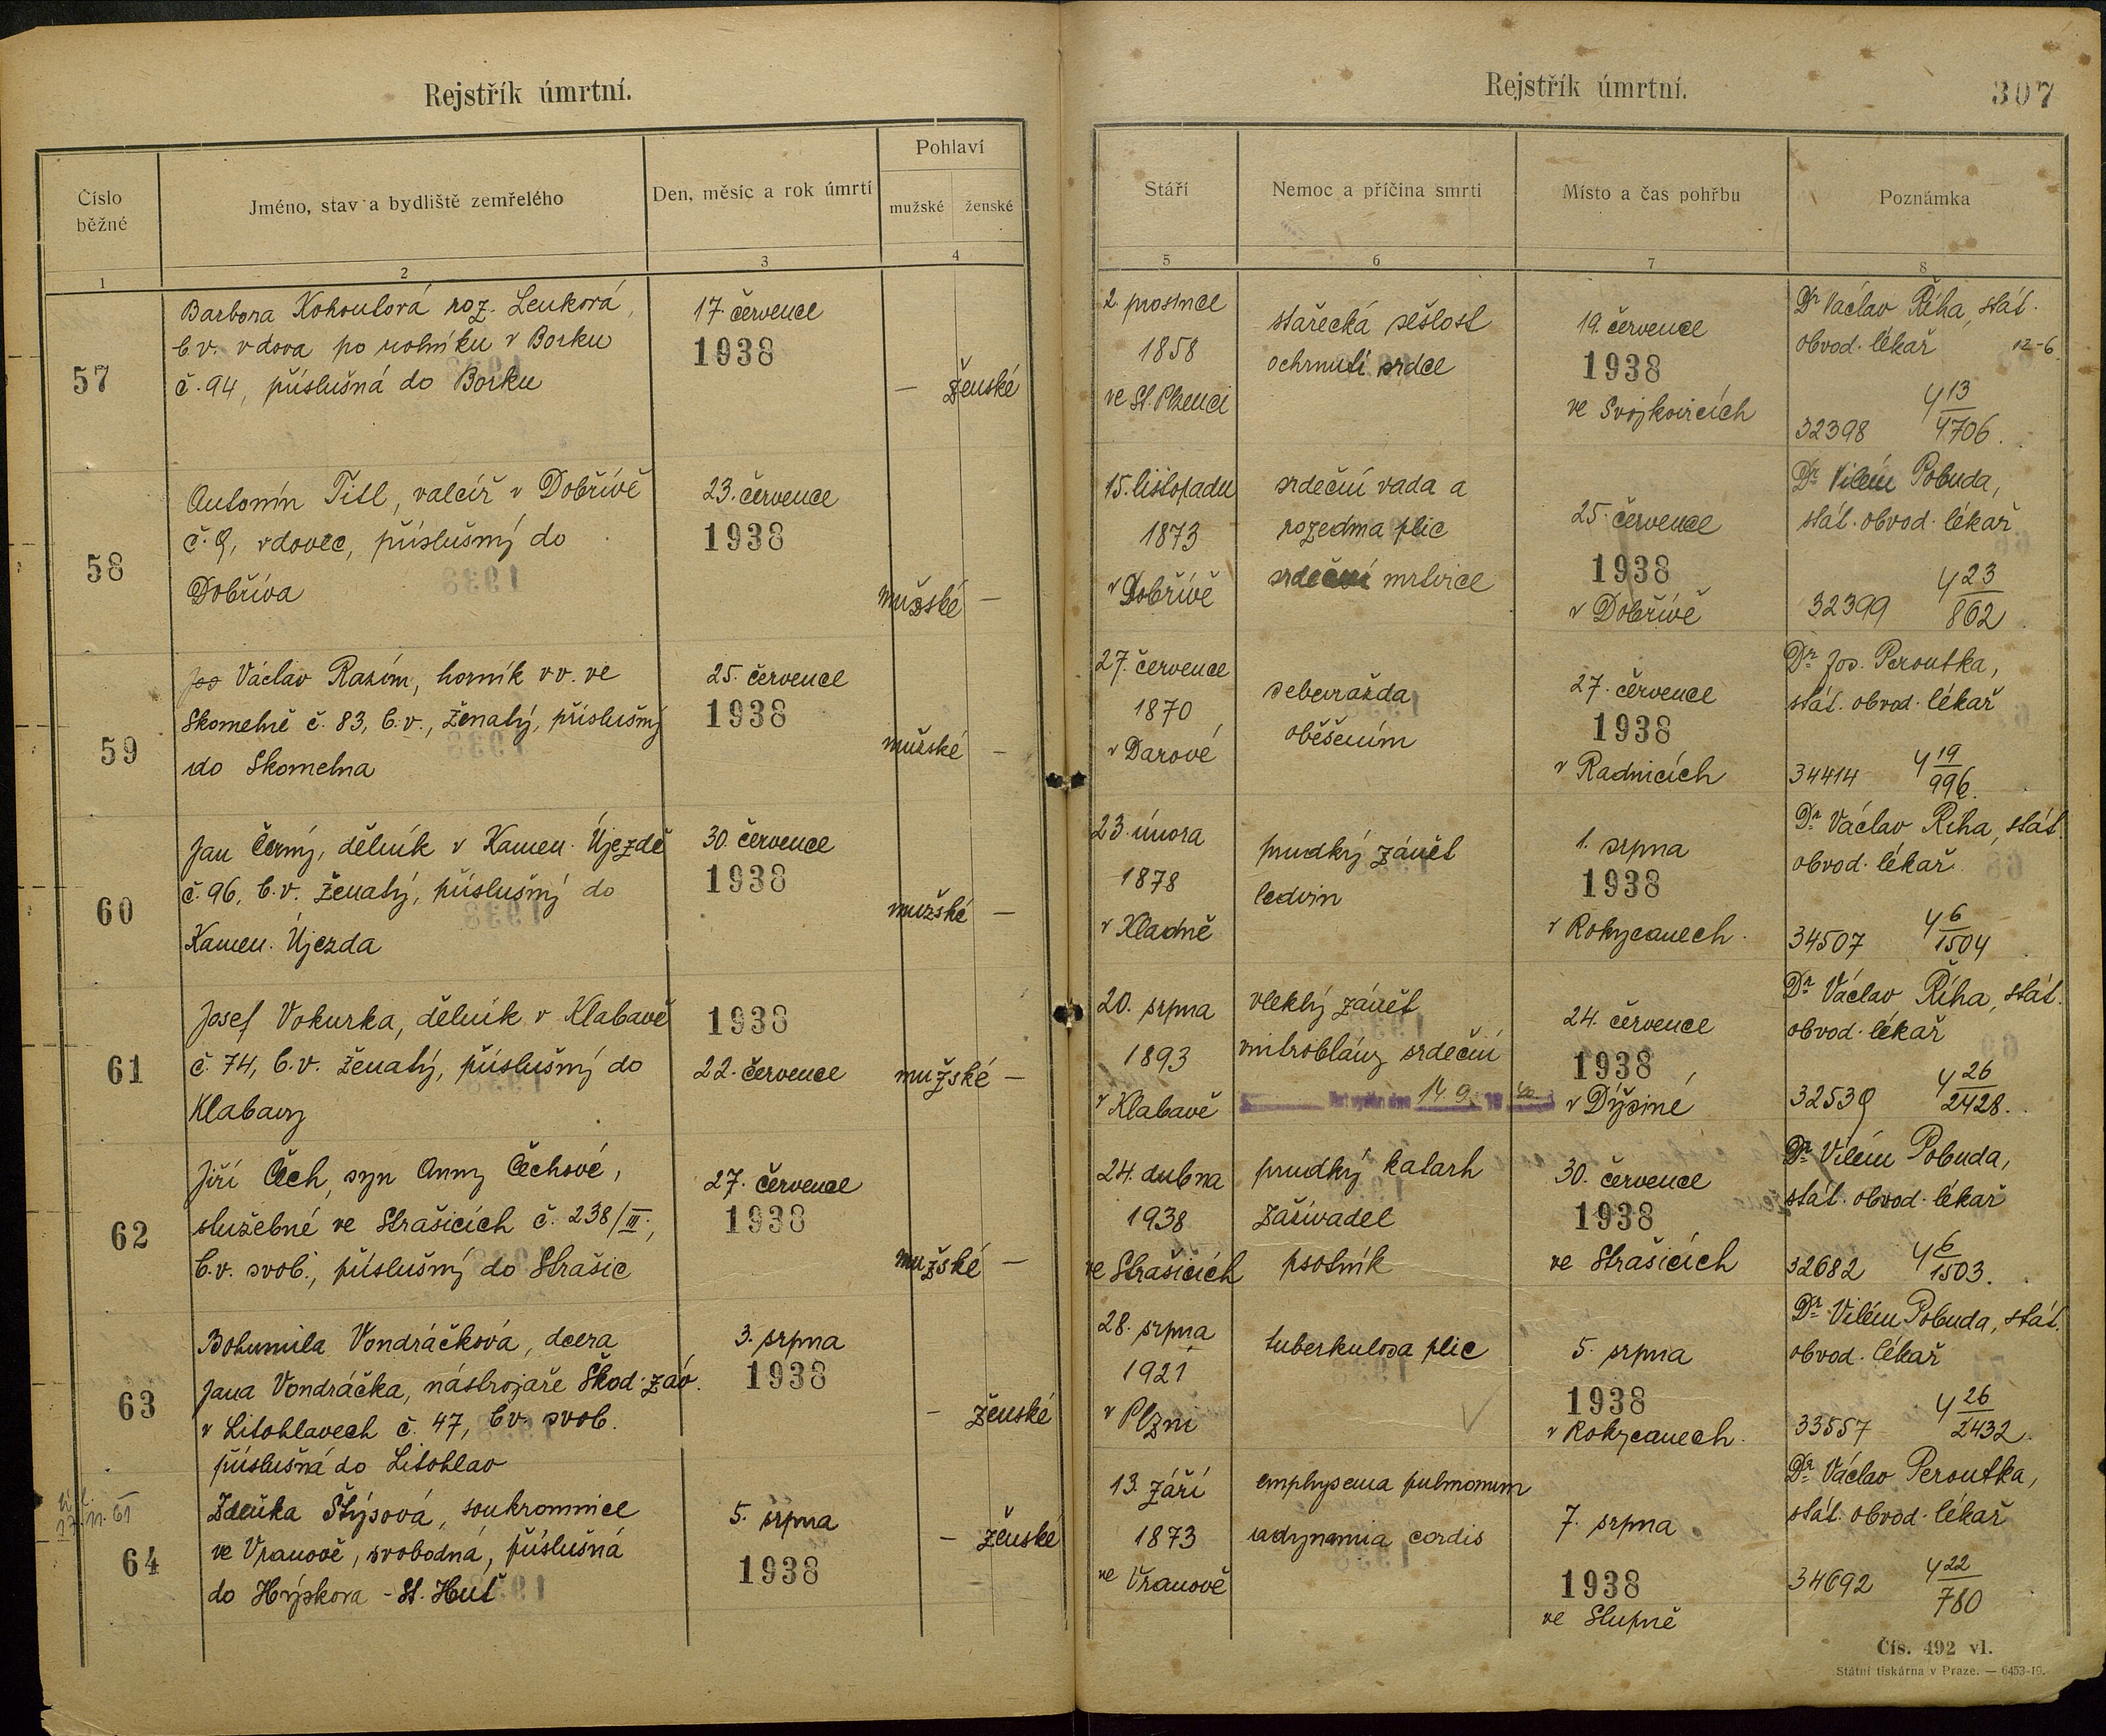 Rejstřík úmrtní.
Číslo běžné
Jméno, stav a bydliště zemřelého
Den, měsíc a rok úmrtí
Pohlaví
mužské ženské
1 2 3 4
57
Barbora Kohoutová roz. Lenková,
b.v. vdova po rolníku v Borku
č. 94, příslušná do Borku
17. července
1938
— ženské
58
Antonín Titl, valcíř v Dobřívě
č. 9, vdovec, příslušný do
Dobříva
23. července
1938
mužské —
59
Václav Razím, horník vv. ve
Skomelně č. 83, b.v., ženatý, příslušný
do Skomelna
25. července
1938
mužské —
60
Jan Černý, dělník v Kamen. Újezdě
č. 96, b.v. ženatý, příslušný do
Kamen. Újezda
30. července
1938
mužské —
61
Josef Vokurka, dělník v Klabavě
č. 74, b.v. ženatý, příslušný do
Klabavy
1938
22. července
mužské —
62
Jiří Čech, syn Anny Čechové,
služebné ve Strašicích č. 238/III.,
b.v. svob., příslušný do Strašic
27. července
1938
mužské —
63
Bohumila Vondráčková, dcera
Jana Vondráčka, nástrojaře Škod. záv.
v Litohlavech č. 47, b.v. svob.
příslušná do Litohlav
3. srpna
1938
— ženské
64
Zdeňka Štýsová, soukromnice
ve Vranově, svobodná, příslušná
do Hýskova - St. Huť
5. srpna
1938
— ženské
Rejstřík úmrtní.
307
Stáří
Nemoc a příčina smrti
Místo a čas pohřbu
Poznámka
5 6 7 8
2. prosince
1858
ve St. Plzenci
stařecká sešlost
ochrnutí srdce
19. července
1938
ve Svojkovicích
Dr Václav Říha, stát.
obvod. lékař 12-6
32398 4 13/4706.
15. listopadu
1873
v Dobřívě
srdeční vada a
rozedma plic
srdeční mrtvice
25. července
1938
v Dobřívě
Dr. Vilém Pobuda,
stát. obvod. lékař
32399 4 23/862
27. července
1870
v Darové
sebevražda
oběšením
27. července
1938
v Radnicích
Dr. Jos. Peroutka,
stát. obvod. lékař
34414 4 19/996.
23. února
1878
v Kladně
prudký zánět
ledvin
1. srpna
1938
v Rokycanech.
Dr. Václav Říha, stát.
obvod. lékař
34507 4 6/1504
20. srpna
1893
v Klabavě
vleklý zánět
vnitroblány srdeční
14. 9. 19
24. července
1938
v Dýšině
Dr. Václav Říha, stát.
obvod. lékař
32539 4 26/2428.
24. dubna
1938
ve Strašicích
prudký katarh
zažívadel
psotník
30. července
1938
ve Strašicích
Dr. Vilém Pobuda,
stát. obvod. lékař
32682 4 6/1503.
28. srpna
1921
v Plzni
tuberkulosa plic
5. srpna
1938
v Rokycanech.
Dr. Vilém Pobuda, stát.
obvod. lékař
33557 4 26/2432.
13. září
1873
ve Vranově
emphysema pulmonum
adynamia cordis
7. srpna
1938
ve Stupně
Dr. Václav Peroutka,
stát. obvod. lékař
34692 4 22/780
Čís. 492 vl.
Státní tiskárna v Praze. — 6453-19.